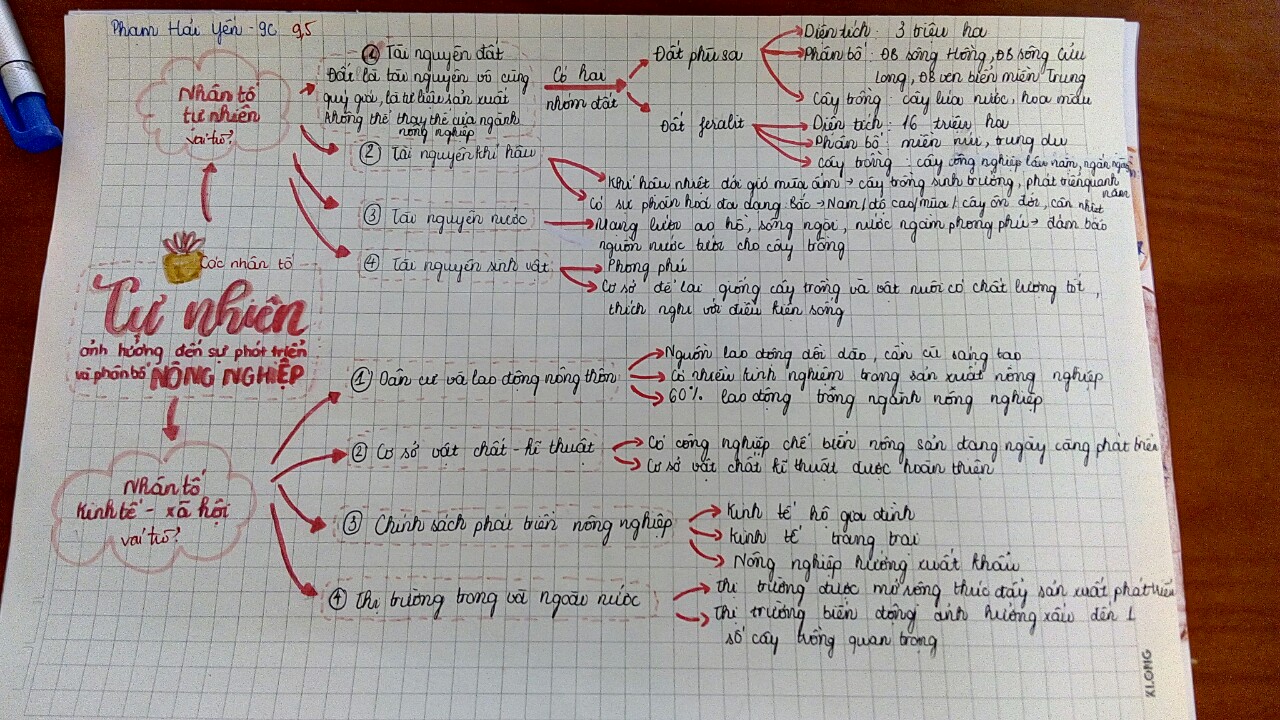 Phạm Hải Yến - 9C 9,5
Nhân tố
tự nhiên
vai trò?
① Tài nguyên đất
Đất là tài nguyên vô cùng
quý giá, là tư liệu sản xuất
không thể thay thế của ngành
nông nghiệp
Có hai
nhóm đất
Đất phù sa
Diện tích: 3 triệu ha
Phân bố: ĐB sông Hồng, ĐB sông Cửu
Long, ĐB ven biển miền Trung
Cây trồng: cây lúa nước, hoa màu
Đất feralit
Diện tích: 16 triệu ha
Phân bố: miền núi, trung du
cây trồng: cây công nghiệp lâu năm, ngắn ngày
② Tài nguyên khí hậu
Khí hậu nhiệt đới gió mùa ẩm → cây trồng sinh trưởng, phát triển quanh
năm
Có sự phân hoá đa dạng Bắc → Nam/độ cao/mùa/cây ôn đới, cận nhiệt
③ Tài nguyên nước
Mạng lưới ao hồ, sông ngòi, nước ngầm phong phú → đảm bảo
nguồn nước tưới cho cây trồng
④ Tài nguyên sinh vật
Phong phú
Cơ sở để lai giống cây trồng và vật nuôi có chất lượng tốt,
thích nghi với điều kiện sống
Các nhân tố
Tự nhiên
ảnh hưởng đến sự phát triển
và phân bố NÔNG NGHIỆP
Nhân tố
Kinh tế - xã hội
vai trò?
① Dân cư và lao động nông thôn
Nguồn lao động dồi dào cần cù sáng tạo
Có nhiều kinh nghiệm trong sản xuất nông nghiệp
60% lao động trong ngành nông nghiệp
② Cơ sở vật chất - kĩ thuật
Có công nghiệp chế biến nông sản đang ngày càng phát triển
Cơ sở vật chất kĩ thuật được hoàn thiện
③ Chính sách phát triển nông nghiệp
Kinh tế hộ gia đình
Kinh tế trang trại
Nông nghiệp hướng xuất khẩu
④ Thị trường trong và ngoài nước
Thị trường được mở rộng thúc đẩy sản xuất phát triển
Thị trường biến động ảnh hưởng xấu đến 1
số cây trồng quan trọng
KLONG